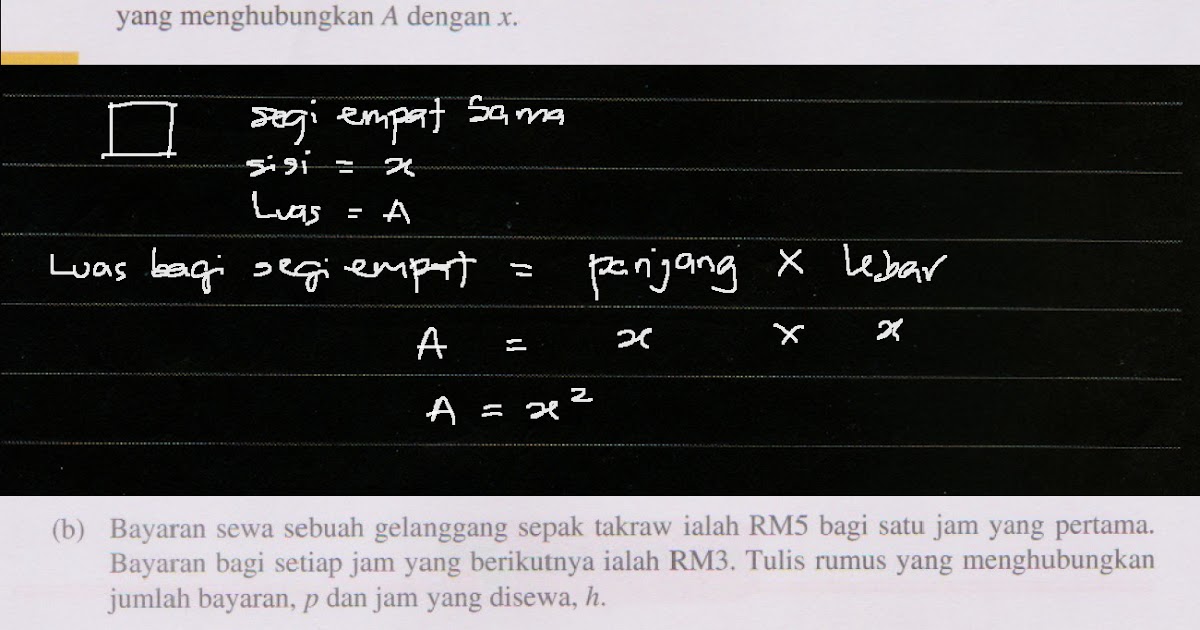 yang menghubungkan A dengan x.
segi empat Sama
sisi = x
Luas = A
Luas bagi segi empat = panjang × Lebar
A = x × x
A = x²
(b) Bayaran sewa sebuah gelanggang sepak takraw ialah RM5 bagi satu jam yang pertama.
Bayaran bagi setiap jam yang berikutnya ialah RM3. Tulis rumus yang menghubungkan
jumlah bayaran, p dan jam yang disewa, h.